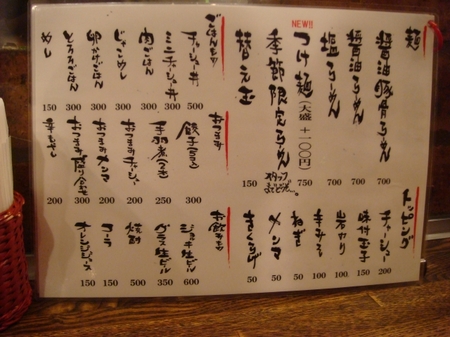 麺
醤油豚骨らーめん 700
醤油らーめん 700
塩らーめん 700
NEW!!
つけ麺(大盛+一〇〇円) 750
季節限定らーめん
替え玉 150
トッピング
チャーシュー 200
味付玉子 100
岩のり 100
辛みそ 100
ねぎ 50
メンマ 50
きくらげ 50
ごはんもの
チャーシュー丼 500
ミニチャーシュー丼 300
肉ごはん 300
じゃこめし 300
卵かけごはん 300
とろろごはん 300
めし 150
おつまみ
餃子(5コ) 300
手羽煮(2本) 250
おつまみチャーシュー 200
おつまみメンマ 200
おつまみ盛り合せ 300
辛もやし 200
お飲みもの
ジョッキ生ビール 600
グラス生ビール 350
焼酎 500
コーラ 150
オレンジジュース 150